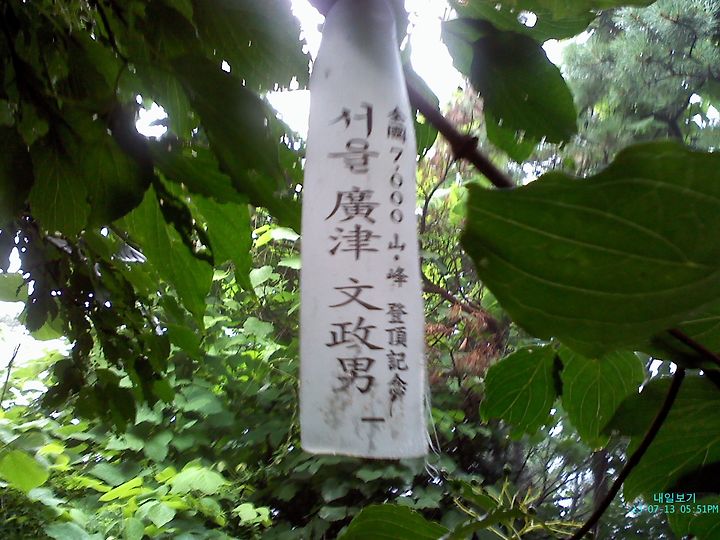 全國 7,000 山·峰 登頂記念
서울 廣津 文政男
내일보기
05:51PM